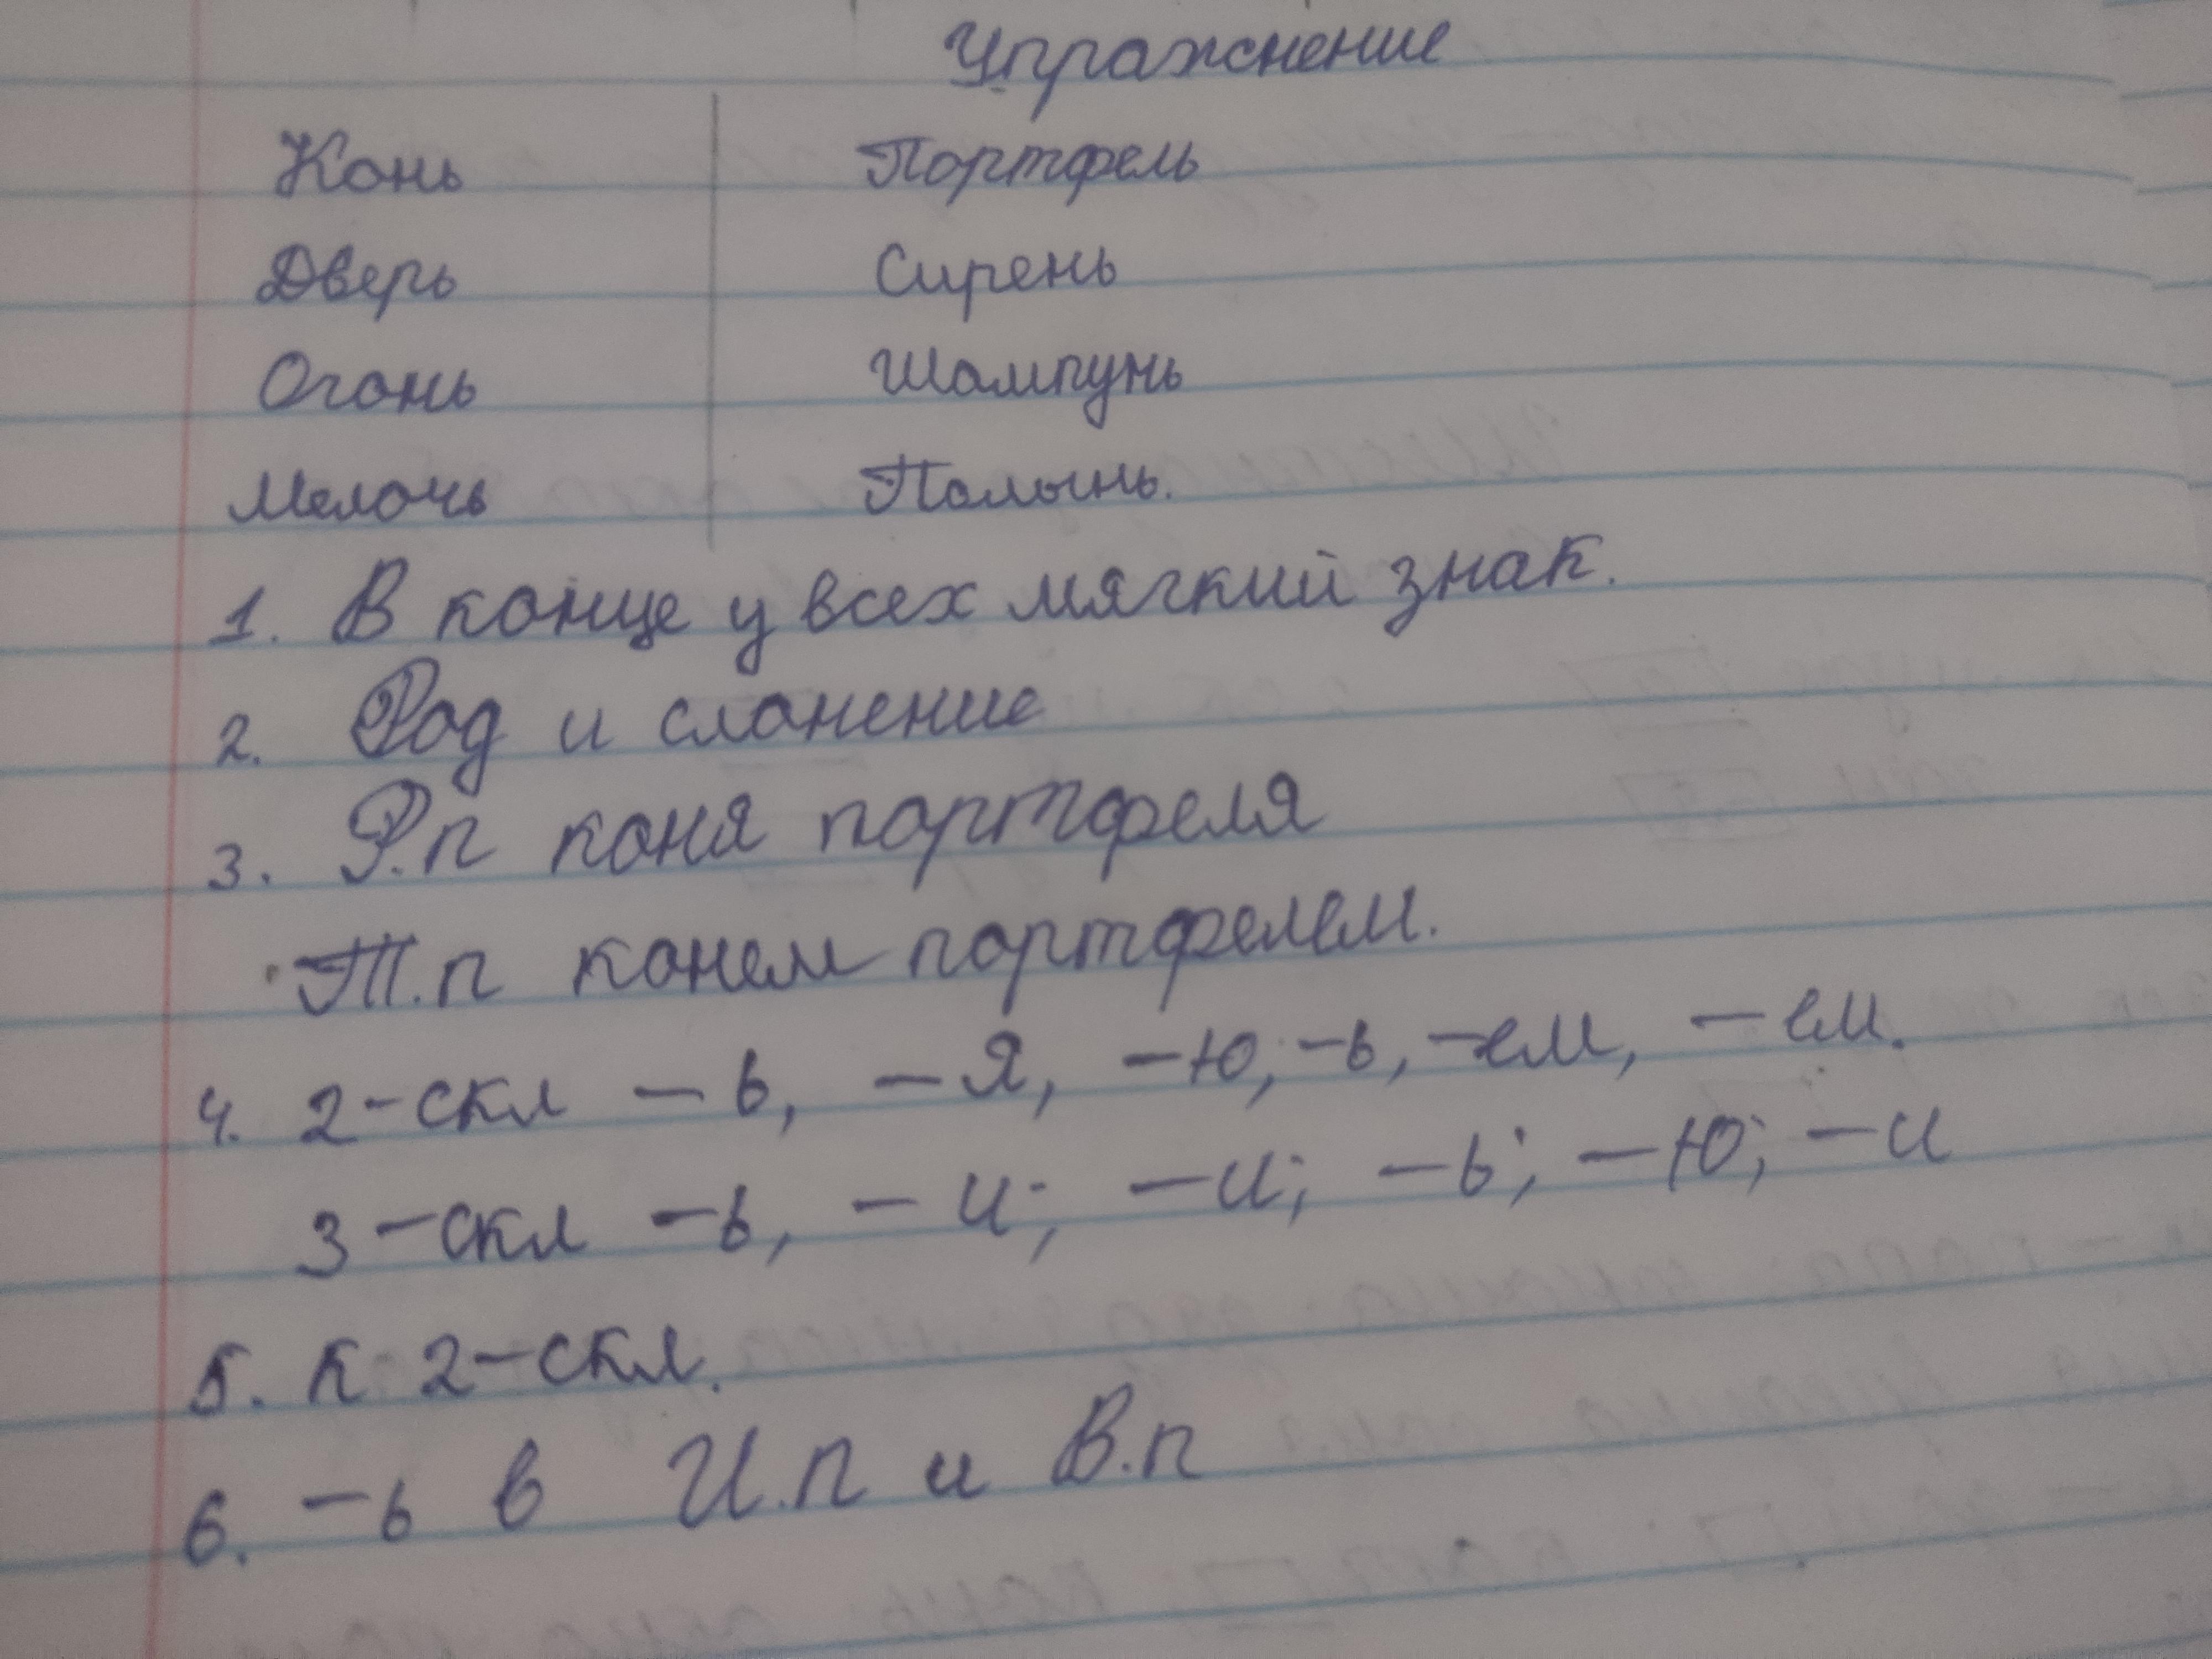 Упражнение
Конь Портфель
Дверь Сирень
Огонь Шампунь
Мелочь Полынь.
1. В конце у всех мягкий знак.
2. Род и сланение
3. Р.п коня портфеля
Т.п конем портфелем.
4. 2-скл – ь, – я, – ю, – ь, – ем, – ем.
3 – скл – ь, – и; – и; – ь; – ю; – и
5. К 2-скл.
6. – ь в И.п и В.п